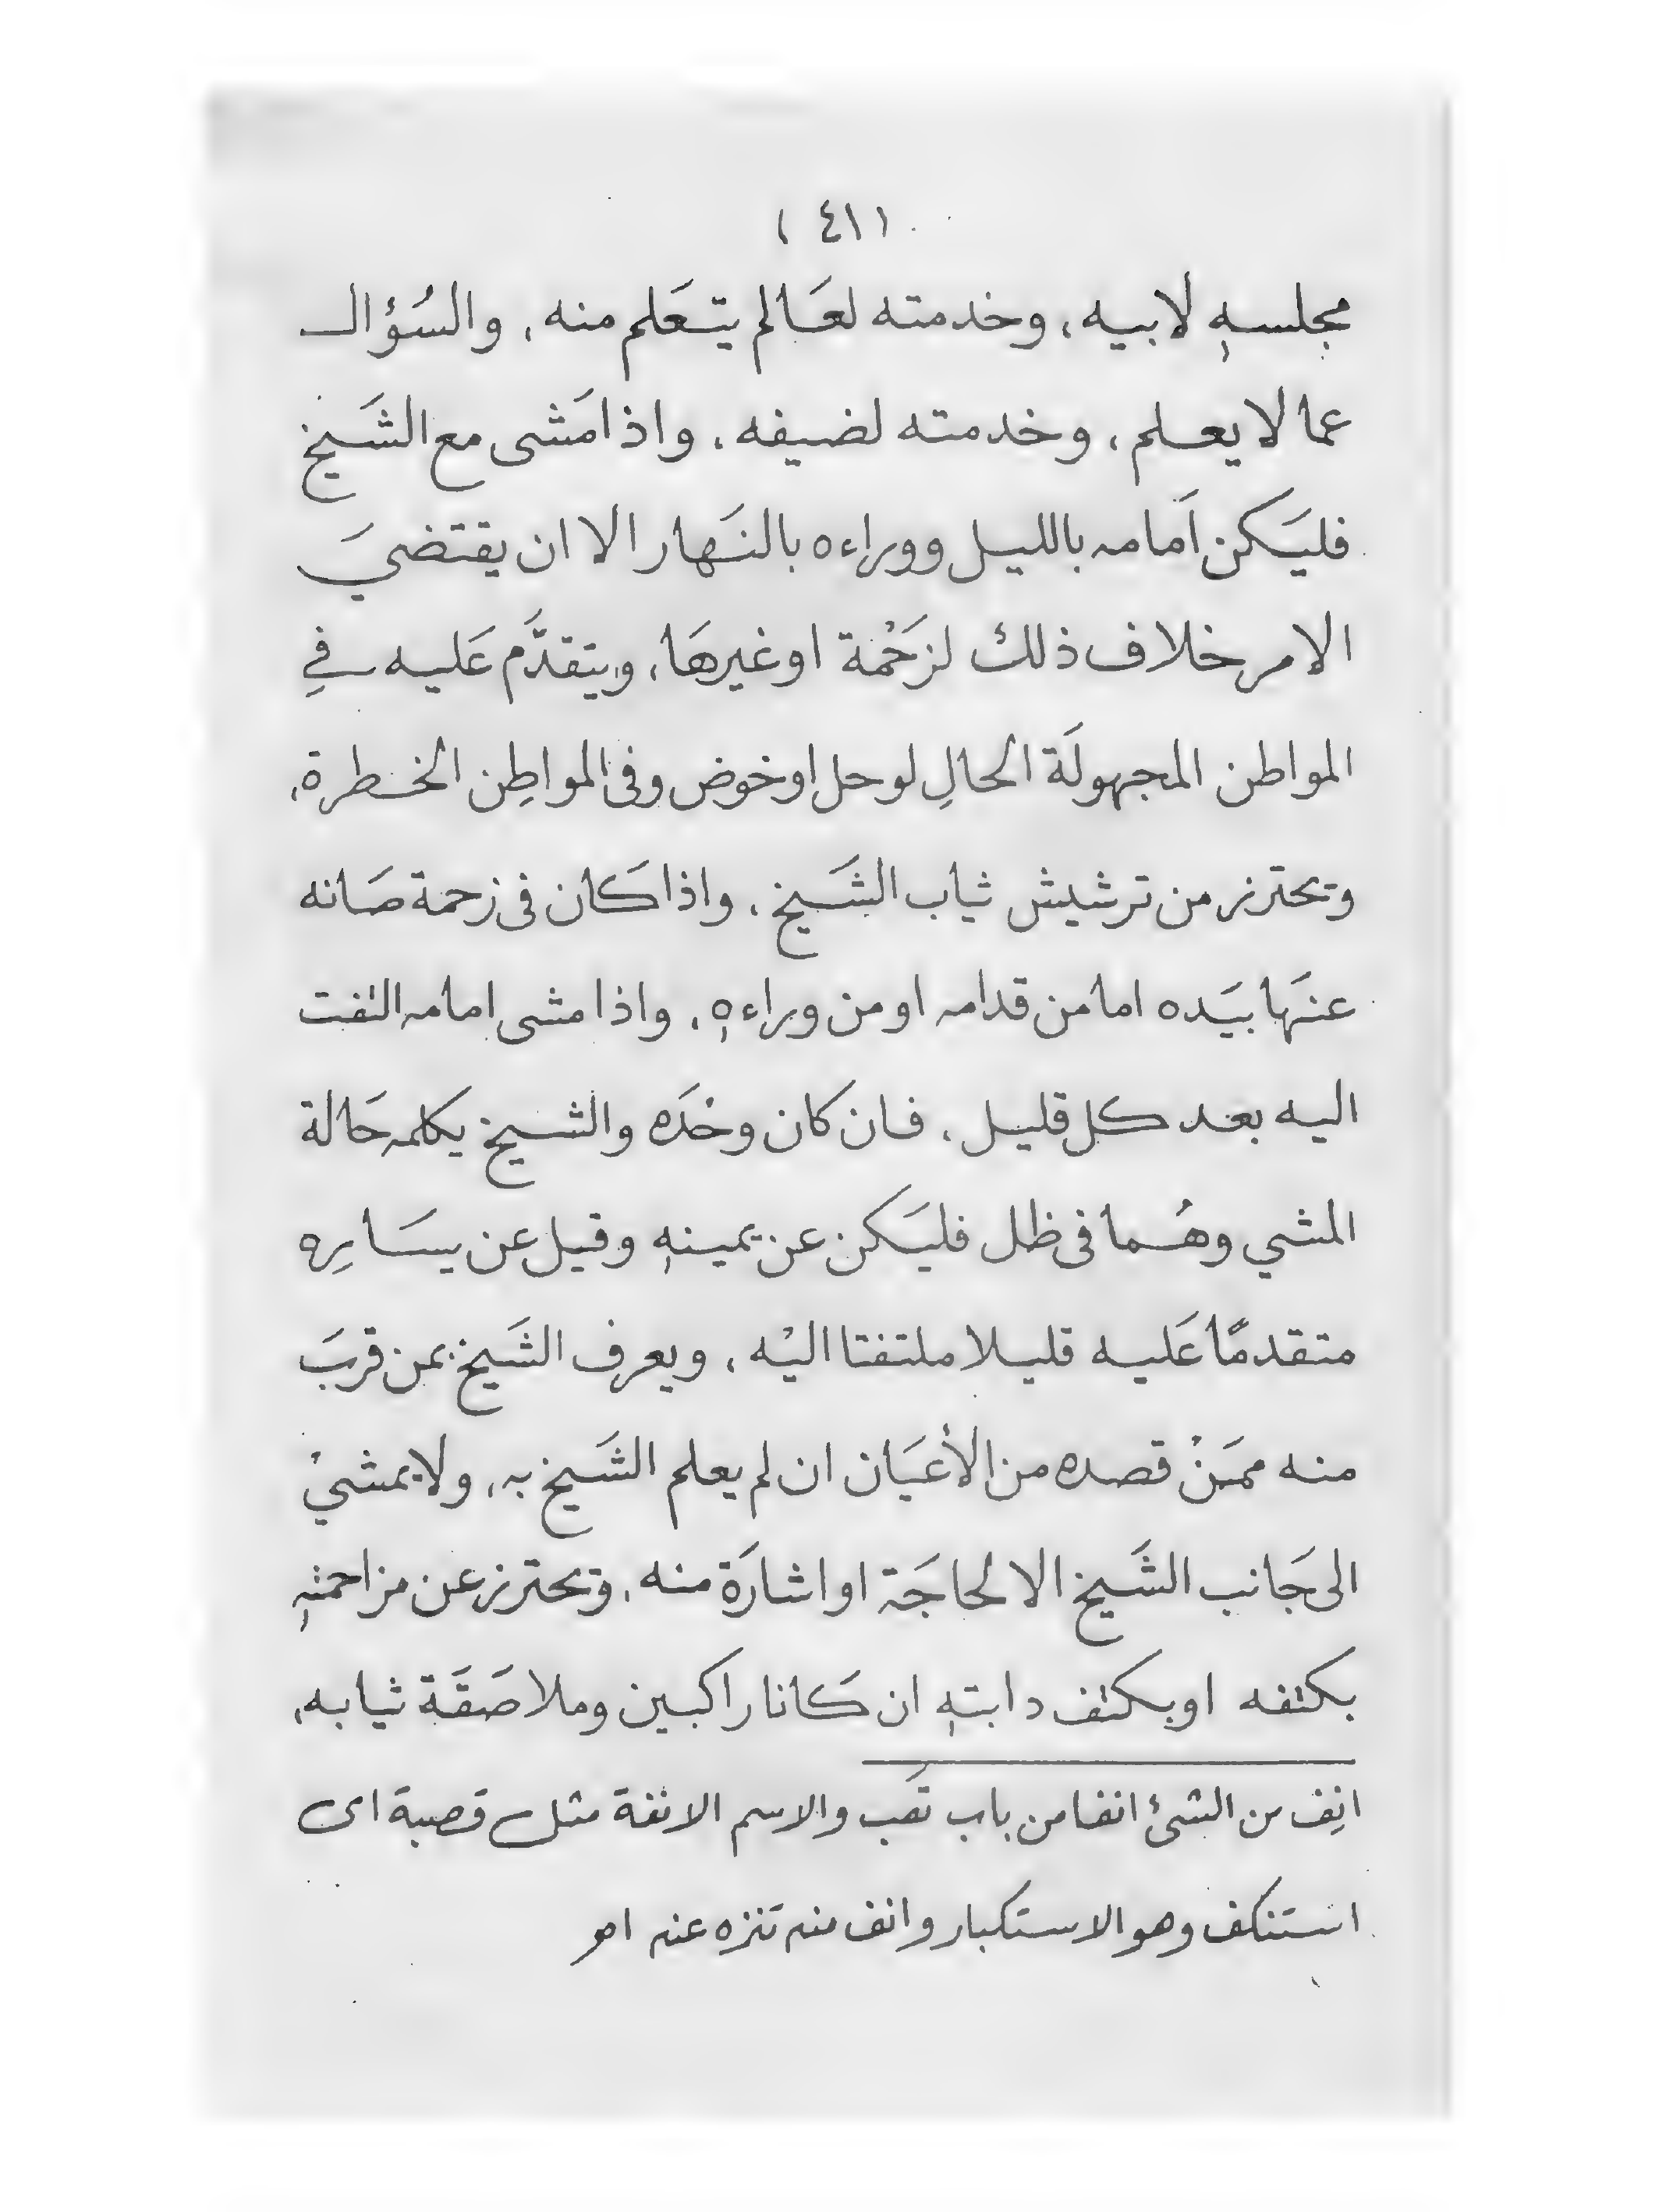 ( ٤١ )
مجلسهٖ لابيه، وخدمته لعَالم يتعَلم منه، والسُؤال
عما لا يعلم، وخدمته لضيفه، واذا مَشى مع الشَيخ
فليَكن اَمامه بالليل ووراءه بالنَهار الا ان يقتضيَ
الامر خلاف ذلك لزَحْمة اوغيرهَا، ويتقدَّم عَليه فِي
المواطن المجهولَة الحالِ لوحل اوخوض وفى المواطِن الخطرة،
ويحترز من ترشيش ثياب الشَيخ، واذا كَان فى زحمة صَانه
عنهَا بيَده اما من قدامه او من وراءهٖ، واذا مشى امامه التفت
اليه بعد كل قليل، فان كان وحْدَه والشيخ يكلمه حَالة
المشي وهُما فى ظل فليَكن عن يمينهٖ وقيل عن يسَارِه
متقدمًا عَليه قليلا ملتفتا اليْه، ويعرف الشَيخ بمن قربَ
منه ممَنْ قصده من الأعيَان ان لم يعلم الشَيخ به، ولا يمشيْ
الى جَانب الشَيخ الا لحاجَة او اشارَة منه، ويحترز عن مزاحمتهٖ
بكتفه اوبكتف دابتهٖ ان كَانا راكبين وملاصَقَة ثيابه،
انِف من الشئ انفا من باب تَعب والاسم الانفة مثل قصبة اى
استنكف وهو الاستكبار وانف منه تنزه عنه اهـ